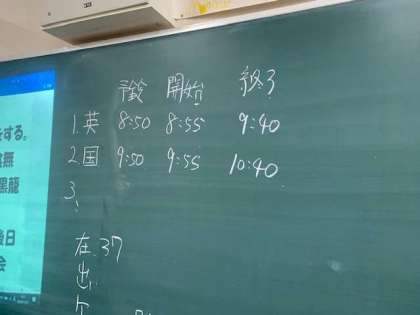 予鈴 開始 終了
1. 英 8:50 8:55 9:40
2. 国 9:50 9:55 10:40
3.
在. 37
出.
をする。
無
黒龍
後日
会